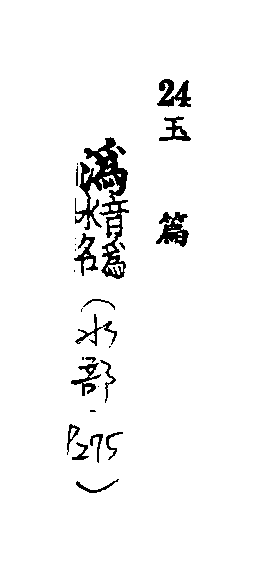 24 玉篇
潙 音爲水名（水部．P275）